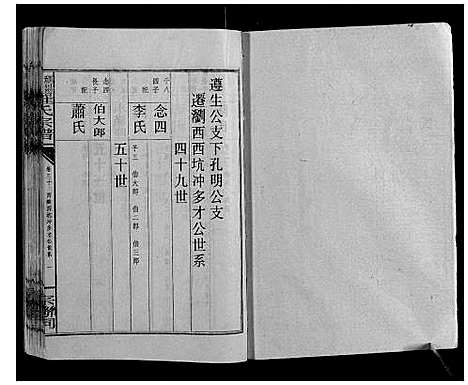 遵生公支下孔明公支
遷瀏西西坑冲多才公世系
四十九世
子八
四子
念四
配
李氏
子三 伯大郎 伯二郎 伯三郎
五十世
念四
長子
伯大郎
配
蕭氏
氏宗譜